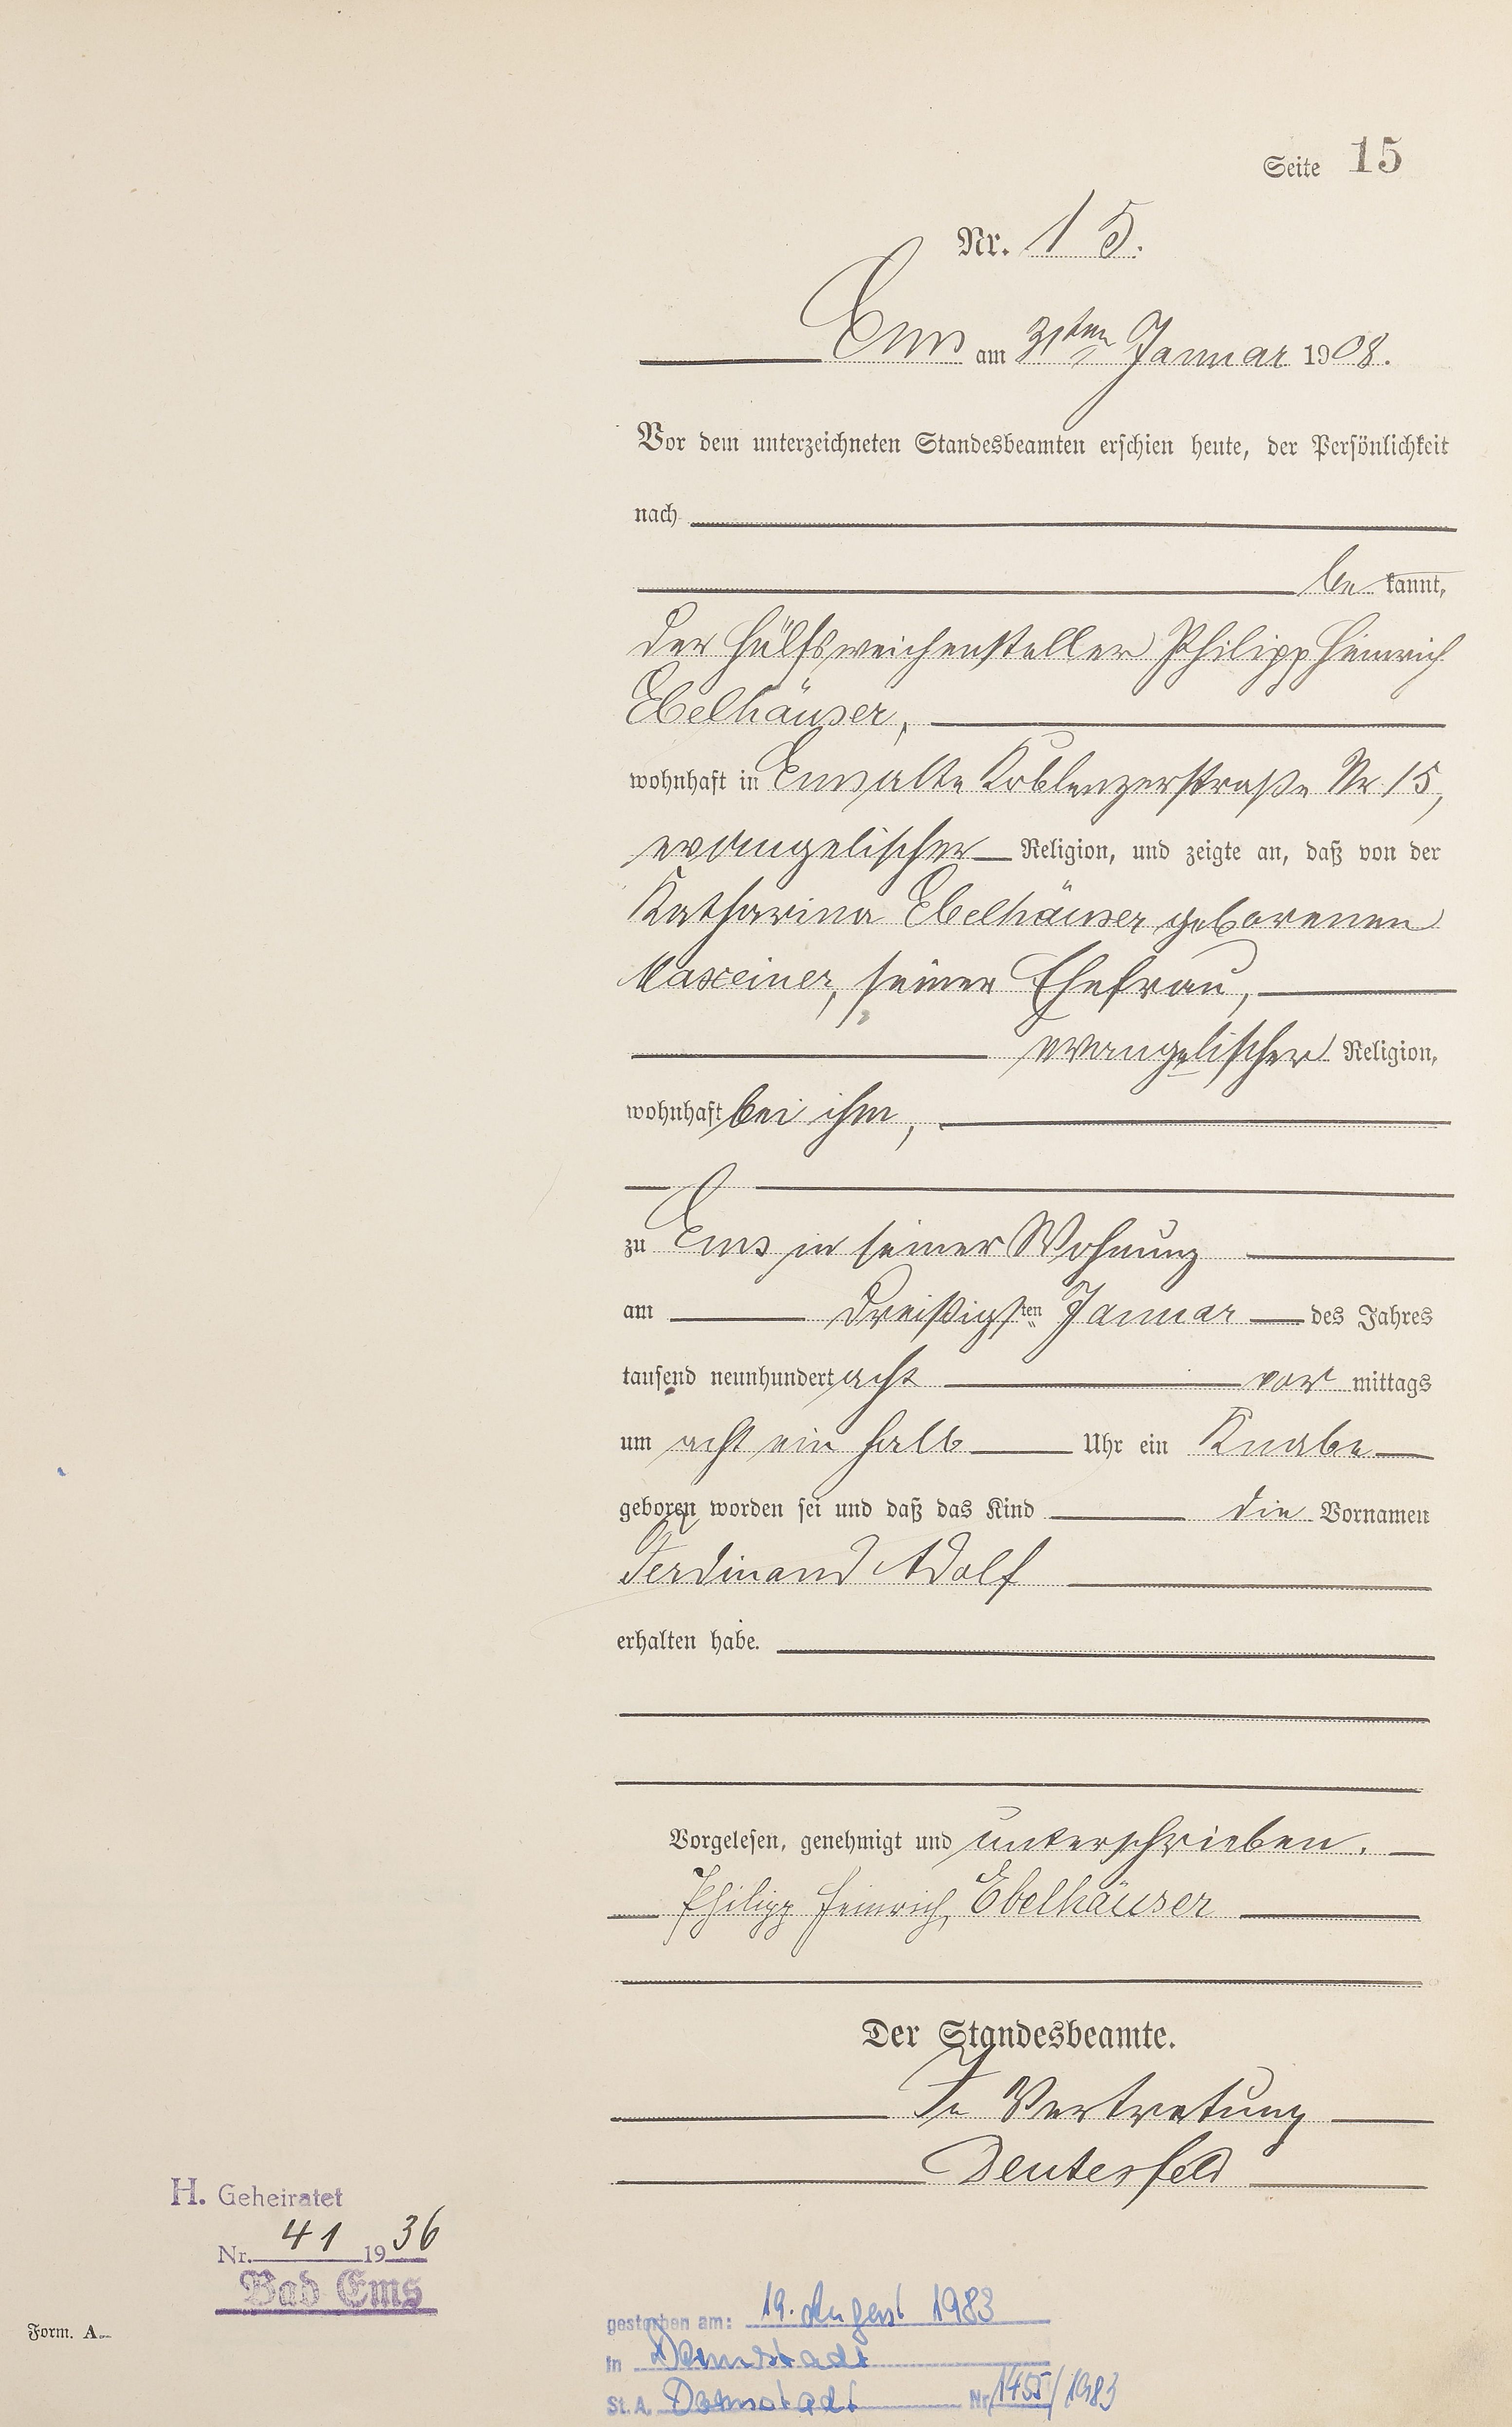 Seite 15
Nr. 15.
Ems am 31ten Januar 1908.
Vor dem unterzeichneten Standesbeamten erschien heute, der Persönlichkeit
nach
be kannt,
der Hülfsweichensteller Philipp Heinrich
Ebelhäuser,
wohnhaft in Ems alte Koblenzerstraße Nr. 15,
evangelischer Religion, und zeigte an, daß von der
Katharina Ebelhäuser geborenen
Maxeiner, seiner Ehefrau,
evangelischer Religion,
wohnhaft bei ihm,
zu Ems in seiner Wohnung
am dreißigsten Januar des Jahres
tausend neunhundert acht vor mittags
um acht ein halb Uhr ein Knabe
geboren worden sei und daß das Kind die Vornamen
Ferdinand Adolf
erhalten habe.
Vorgelesen, genehmigt und unterschrieben.
Philipp Heinrich Ebelhäuser
Der Standesbeamte.
In Vertretung
Deutesfeld
H. Geheiratet
Nr. 41 1936
Bad Ems
gestorben am: 19. August 1983
in Darmstadt
St. A. Darmstadt Nr. 1455/1983
Form. A.